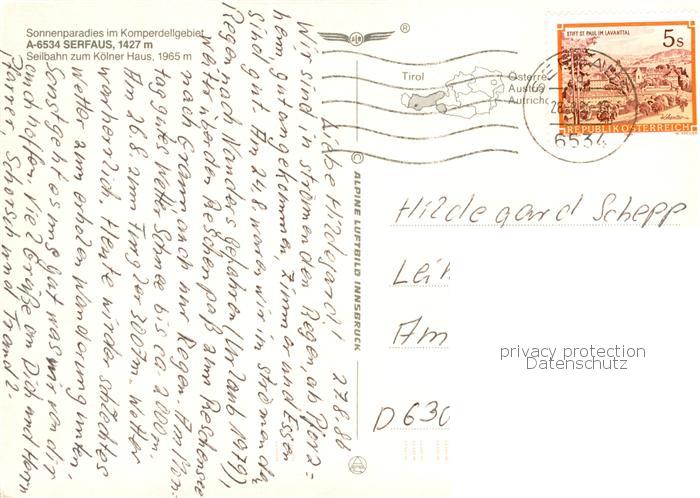 Sonnenparadies im Komperdellgebiet
A-6534 SERFAUS, 1427 m
Seilbahn zum Kölner Haus, 1965 m
®
Tirol
Österre
Austria
Autriche
STIFT ST. PAUL IM LAVANTTAL
5s
REPUBLIK ÖSTERREICH
6534
© ALPINE LUFTBILD INNSBRUCK
27.8.86
Liebe Hildegard!
Wir sind in strömenden Regen, ab Pfora=
heim, gut angekommen, Zimmer und Essen
sind gut. Am 24.8 waren wir in strömende
Regen nach Nanders gefahren (Urlaub 1979),
weiter über den Reschenpaß zum Reschensee
nach Graun, auch nur Regen. Am Mon=
tag gutes Wetter Schnee bis ca. 2000m.
Am 26.8. zum 3007m. Wetter
war herrlich. Heute wieder schlechtes
Wetter zum erholen Wanderung unten,
Sonst geht es uns gut was wir von dir
auch hoffen. Viel Grüße an Dich und Herrn
Pfarrer, Schorsch und
Hildegard Schepp
Lei
Am
D 630
privacy protection
Datenschutz